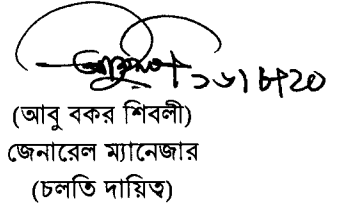 (আবু বকর শিবলী)
জেনারেল ম্যানেজার
(চলতি দায়িত্ব)